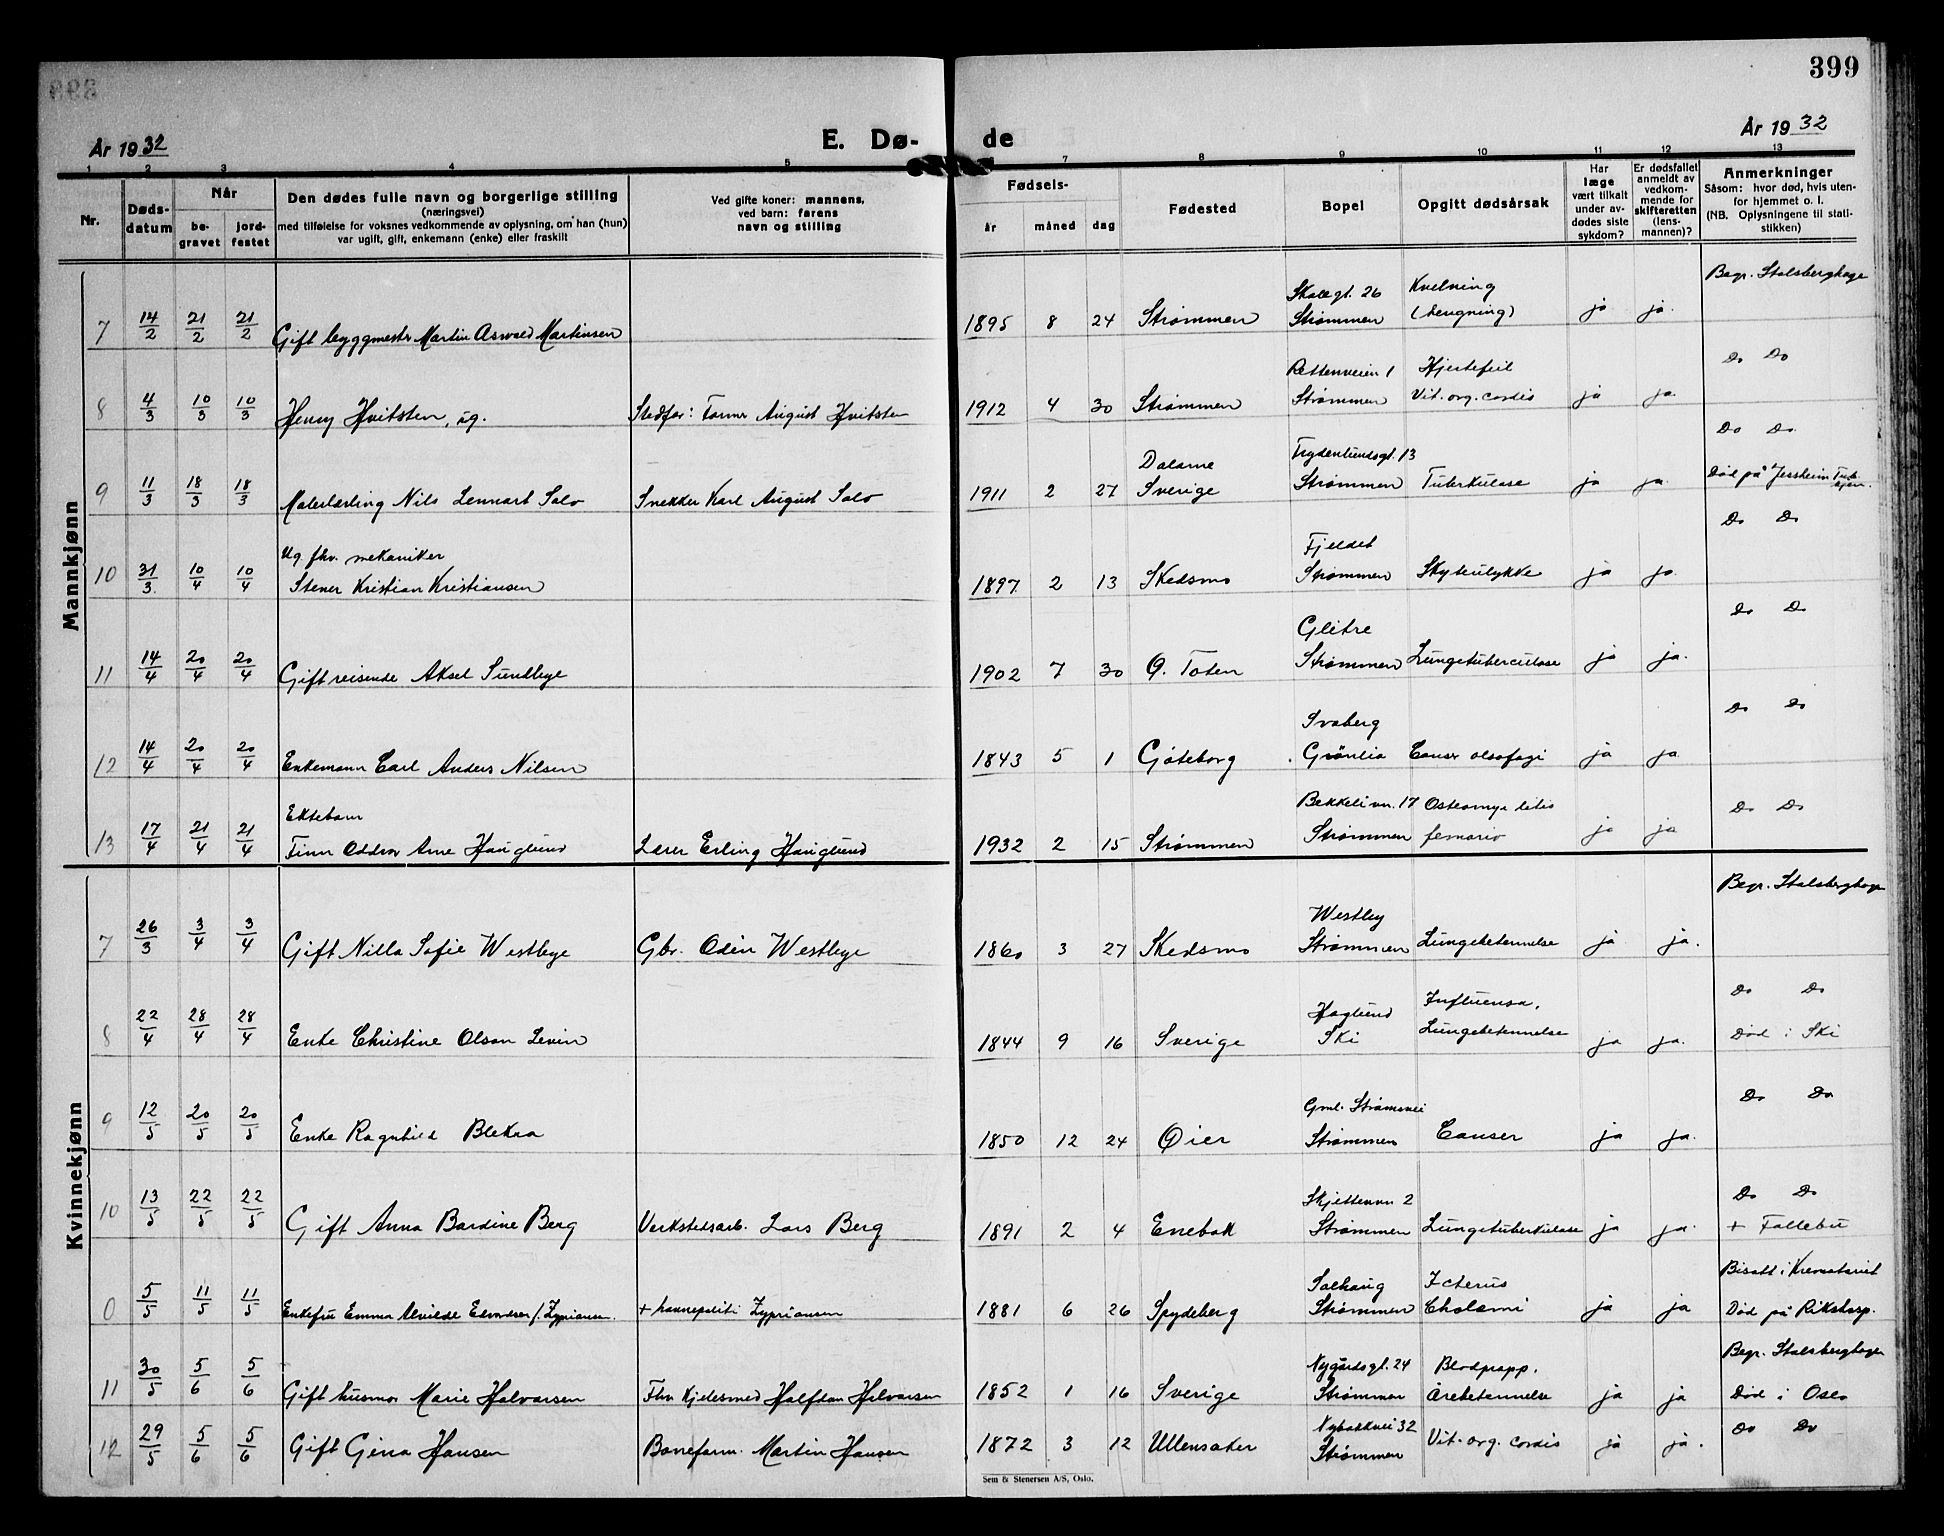 399
År 1932
E. Dø-
de
År 1932
1 2 3 4 5 7 8 9 10 11 12 13
Nr.
Døds-
datum
Når
be-
gravet
jord-
festet
Den dødes fulle navn og borgerlige stilling
(næringsvei)
med tilføielse for voksnes vedkommende av oplysning, om han (hun)
var ugift, gift, enkemann (enke) eller fraskilt
Ved gifte koner: mannens,
ved barn: farens
navn og stilling
Fødsels-
år måned dag
Fødested
Bopel
Opgitt dødsårsak
Har
læge
vært tilkalt
under av-
dødes siste
sykdom?
Er dødsfallet
anmeldt av
vedkom-
mende for
skifteretten
(lens-
mannen)?
Anmerkninger
Såsom: hvor død, hvis uten-
for hjemmet o. l.
(NB. Oplysningene til stati-
stikken)
Mannkjønn
Begr. Stalsberghage
Skolegt. 26 Kvelning
7 14/2 21/2 21/2 Gift byggmester Martin Asvald Martinsen 1895 8 24 Strømmen Strømmen (hengning) ja ja.
Rettenveien 1 Hjertefeil Do Do
8 4/3 10/3 10/3 Henry Hvitsten, ug. Stedfar: Former August Hvitsten 1912 4 30 Strømmen Strømmen Vit. org. cordis ja ja.
Do Do.
Dalarne Frydenlundsgt. 13
9 11/3 18/3 18/3 Malerlærling Nils Lennart Salo Snekker Karl August Salo 1911 2 27 Sverige Strømmen Tuberkulose ja ja. Død på Jessheim Tub.
hjem.
Do Do
Ug. fhv. mekaniker Fjeldet
10 31/3. 10/4 10/4 Stener Kristian Kristiansen 1897 2 13 Skedsmo Strømmen Skyteulykke ja ja.
Glitre Do Do
11 14/4 20/4 20/4 Gift reisende Aksel Sundbye 1902 7 30 Ø. Toten Strømmen Lungetuberculose ja ja.
Svaberg Do Do
12 14/4 20/4 20/4 Enkemann Carl Anders Nilsen 1843 5 1 Göteborg Grönlia Canser ja ja.
Ektebarn Bekkelivn. 17 Osteomye litis Do Do
13 17/4 21/4 21/4 Finn Oddvar Arne Hauglund Lærer Erling Hauglund 1932 2 15 Strømmen Strømmen ja ja
Kvinnekjønn
Begr. Stalsberghage
Westby
7 26/3 3/4 3/4 Gift Nilla Sofie Westbye Gbr. Odin Westbye 1860 3 27 Skedsmo Strømmen Lungebetennelse ja ja.
Haglund Influensa, Do Do
8 22/4 28/4 28/4 Enke Christine Olson Levin 1844 9 16 Sverige Ski Lungebetennelse ja ja. Død i Ski
Gml. Strømsvei Do Do
9 12/5 20/5 20/5 Enke Ragnhild Blekra 1850 12 24 Øier Strømmen Canser ja ja.
Skjettenvn 2 Do Do
10 13/5 22/5 22/5 Gift Anna Bardine Berg Verkstedsarb. Lars Berg 1891 2 4 Enebak Strømmen Lungetuberkulose ja ja. + Fallebu
Solhaug Icterus Bisatt i Krematoriet
0 5/5 11/5 11/5 Enkefru Emma Alvilde Edvardsen f. Zypriansen. + Zypriansen 1881 6 26 Spydeberg Strømmen Cholemi ja ja Død på Rikshosp.
Nygårdsgt. 24 Blodpropp. Begr. Stalsberghagen
11 30/5 5/6 5/6 Gift husmor Marie Halvorsen Fhv. Kjelesmed Halfdan Halvorsen 1852 1 16 Sverige Strømmen Årebetennelse ja ja Død i Oslo
Nybakkvei 32 Do Do
12 29/5 5/6 5/6 Gift Gina Hansen Baneform. Martin Hansen 1872 3 12 Ullensaker Strømmen Vit. org. cordis ja ja.
Sem & Stenersen A/S, Oslo.